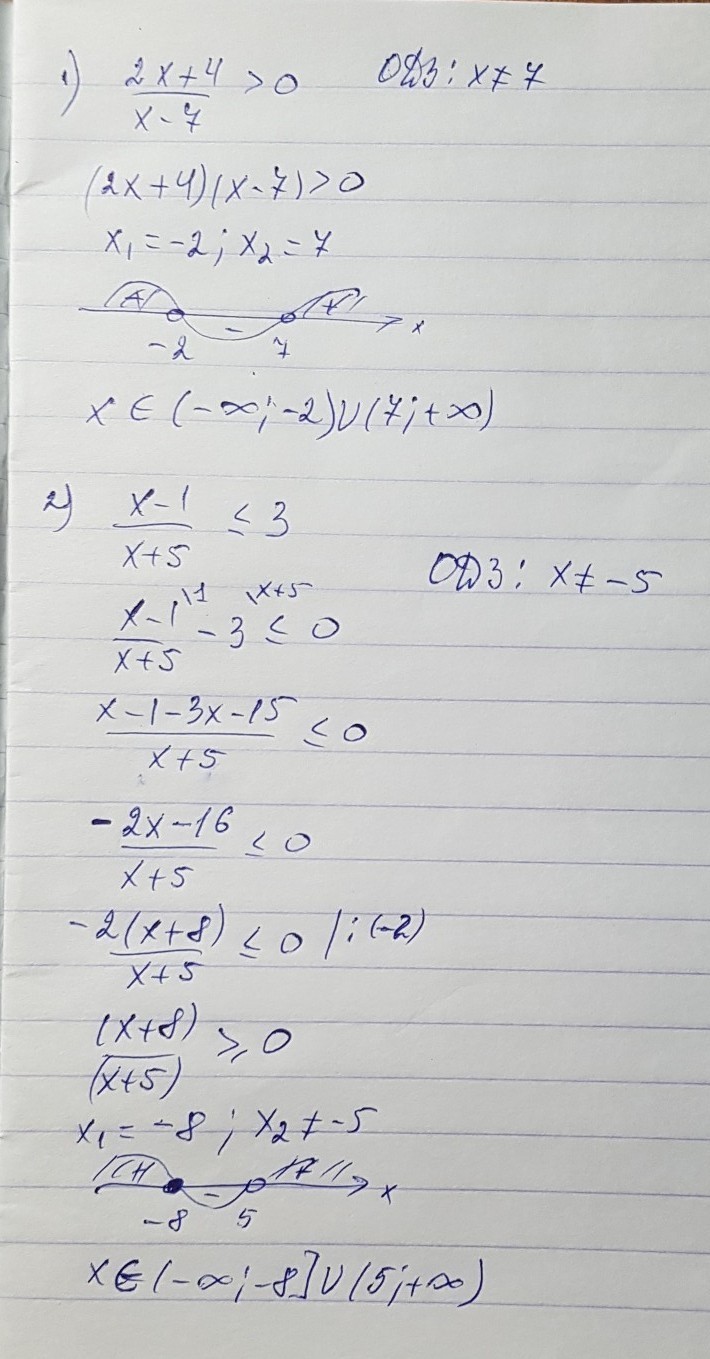 1) (2x+4)/(x-7) > 0 ОДЗ: x≠7
(2x+4)(x-7)>0
x₁=-2; x₂=7
+ - + x
-2 7
x∈(-∞;-2)∪(7;+∞)
2) (x-1)/(x+5) ≤ 3
ОДЗ: x≠-5
(x-1)/(x+5) \1 - 3 \x+5 ≤ 0
(x-1-3x-15)/(x+5) ≤ 0
(-2x-16)/(x+5) ≤ 0
-2(x+8)/(x+5) ≤ 0 |:(-2)
(x+8)/(x+5) ≥ 0
x₁=-8; x₂≠-5
+ - + x
-8 5
x∈(-∞;-8]∪(5;+∞)